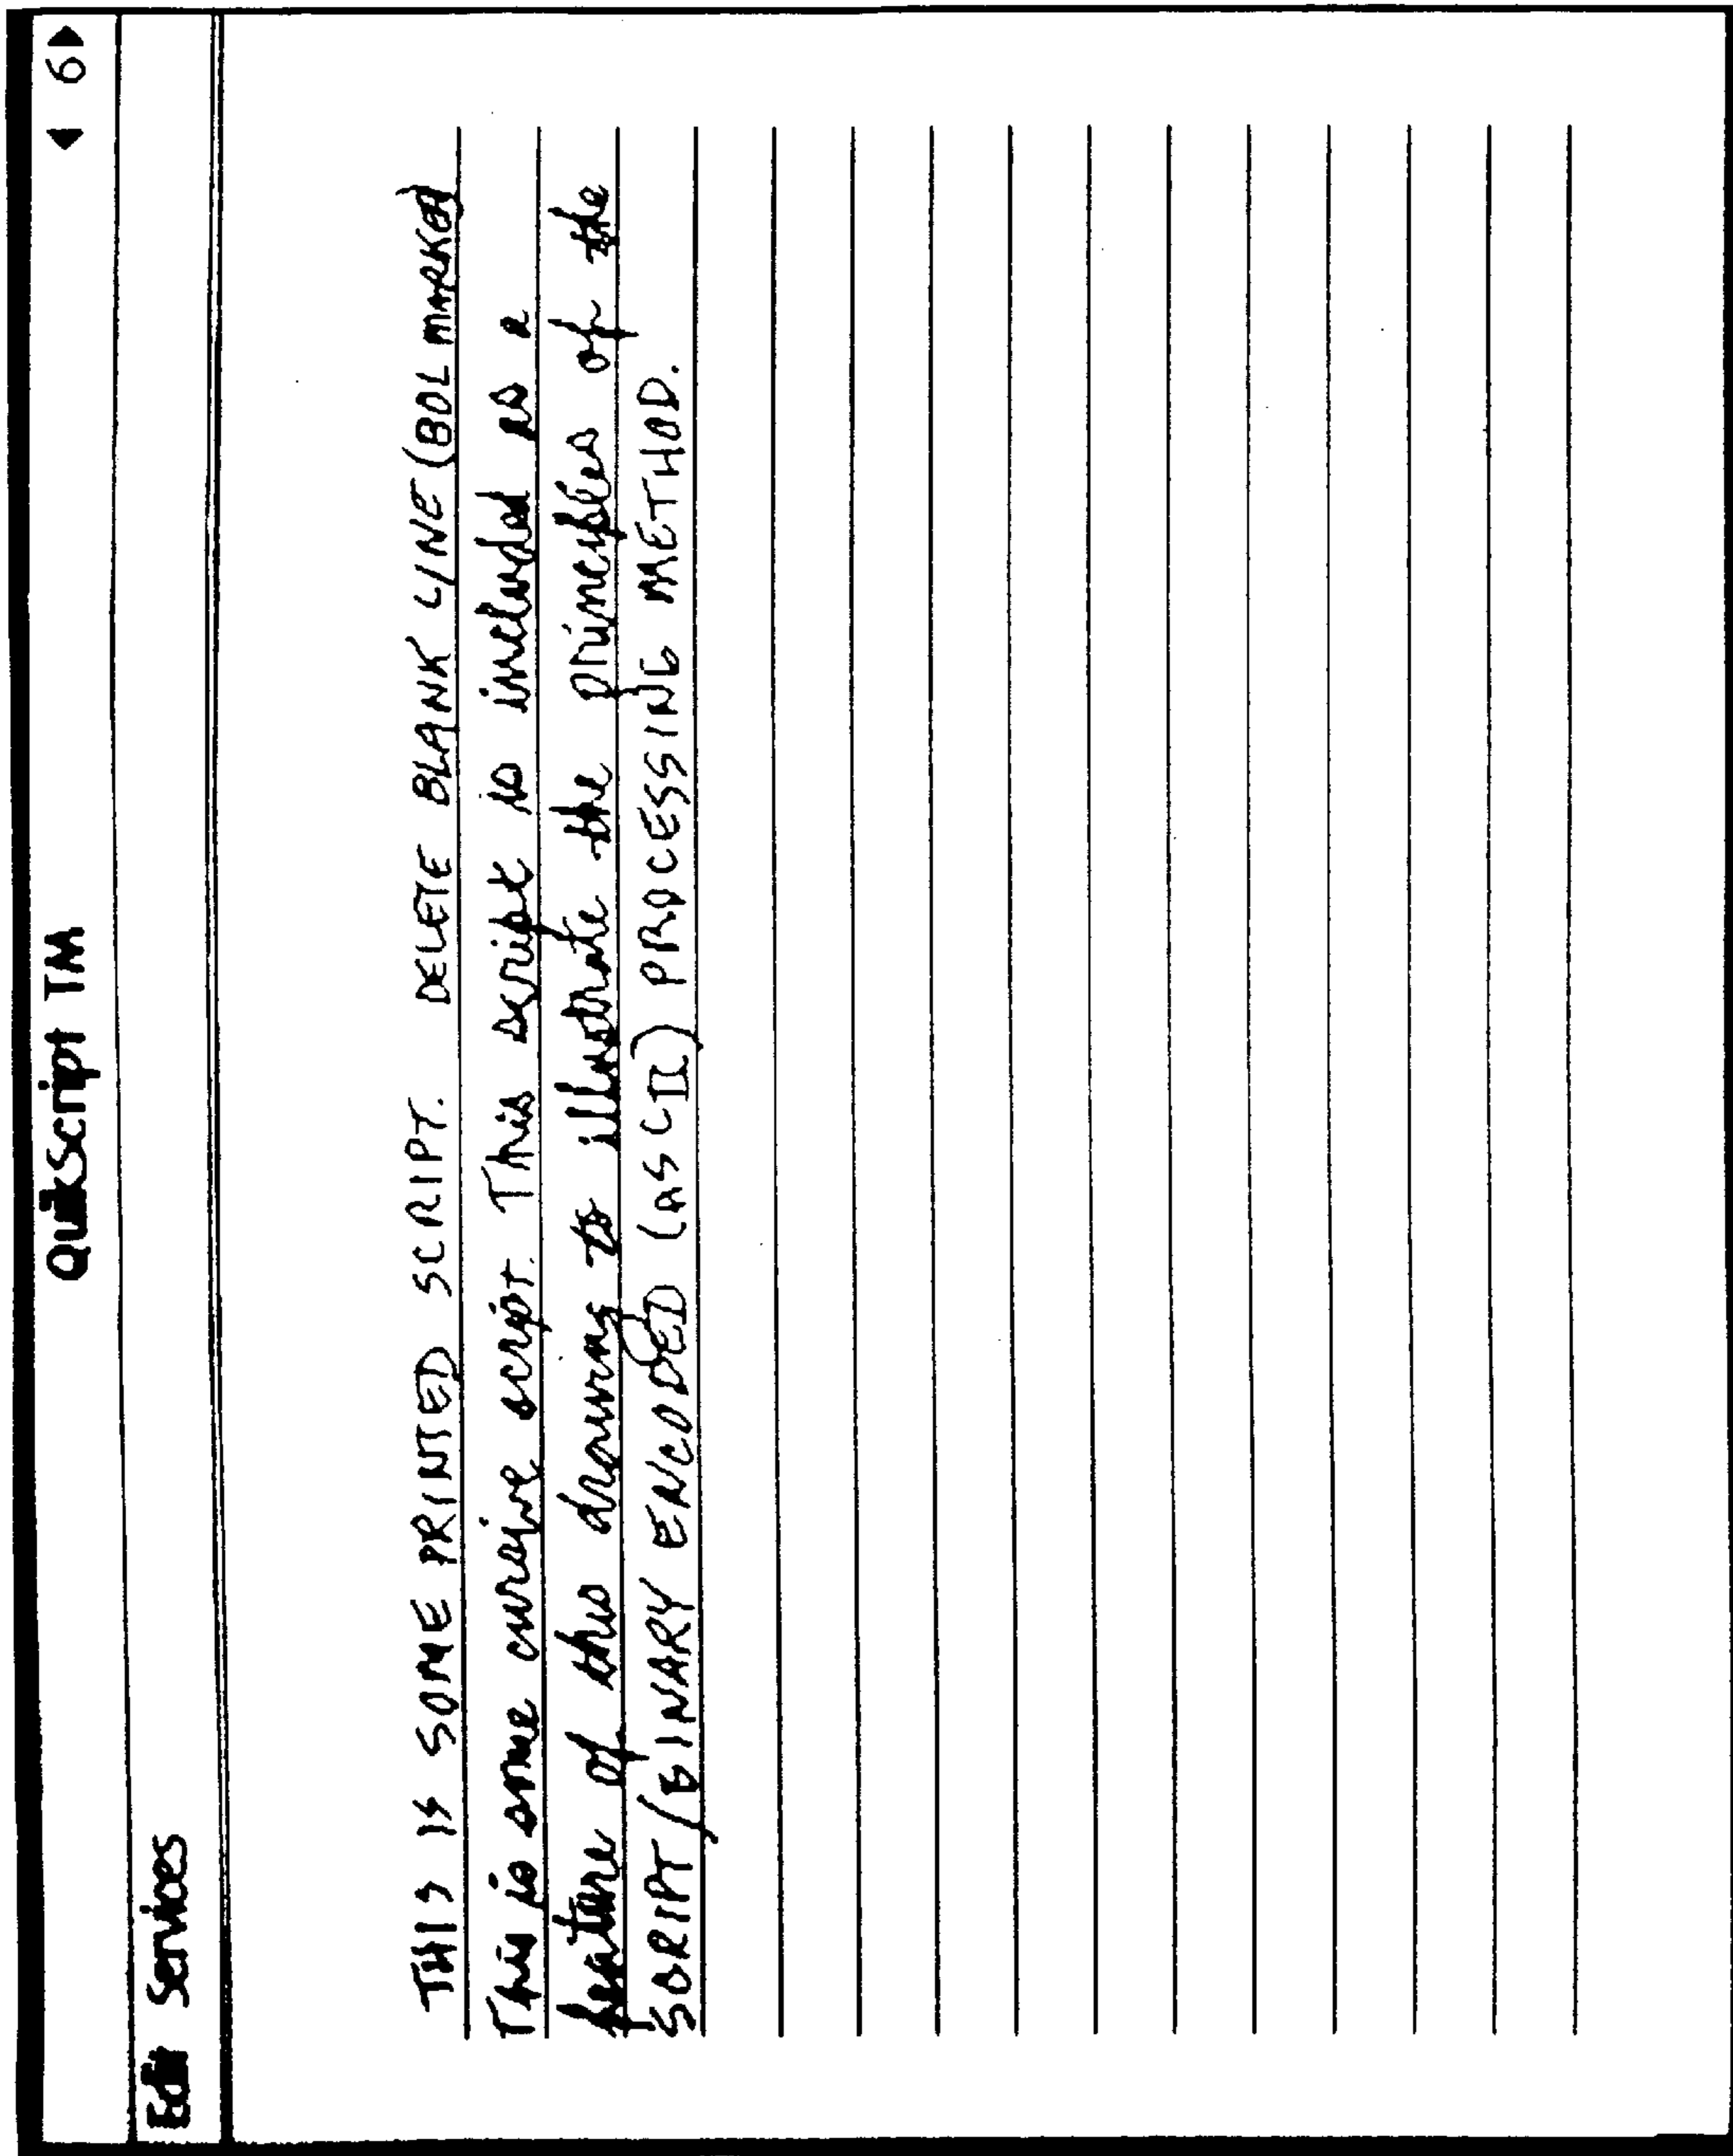 QuikScript TM ◀ 6 ▶
Edit Services
THIS IS SOME PRINTED SCRIPT. DELETE BLANK LINE (BOL MARKED)
This is some cursive script. This script is included as a
feature of this drawing to illustrate the principles of the
SCRIPT/(BINARY ENCODED (ASCII) PROCESSING METHOD.